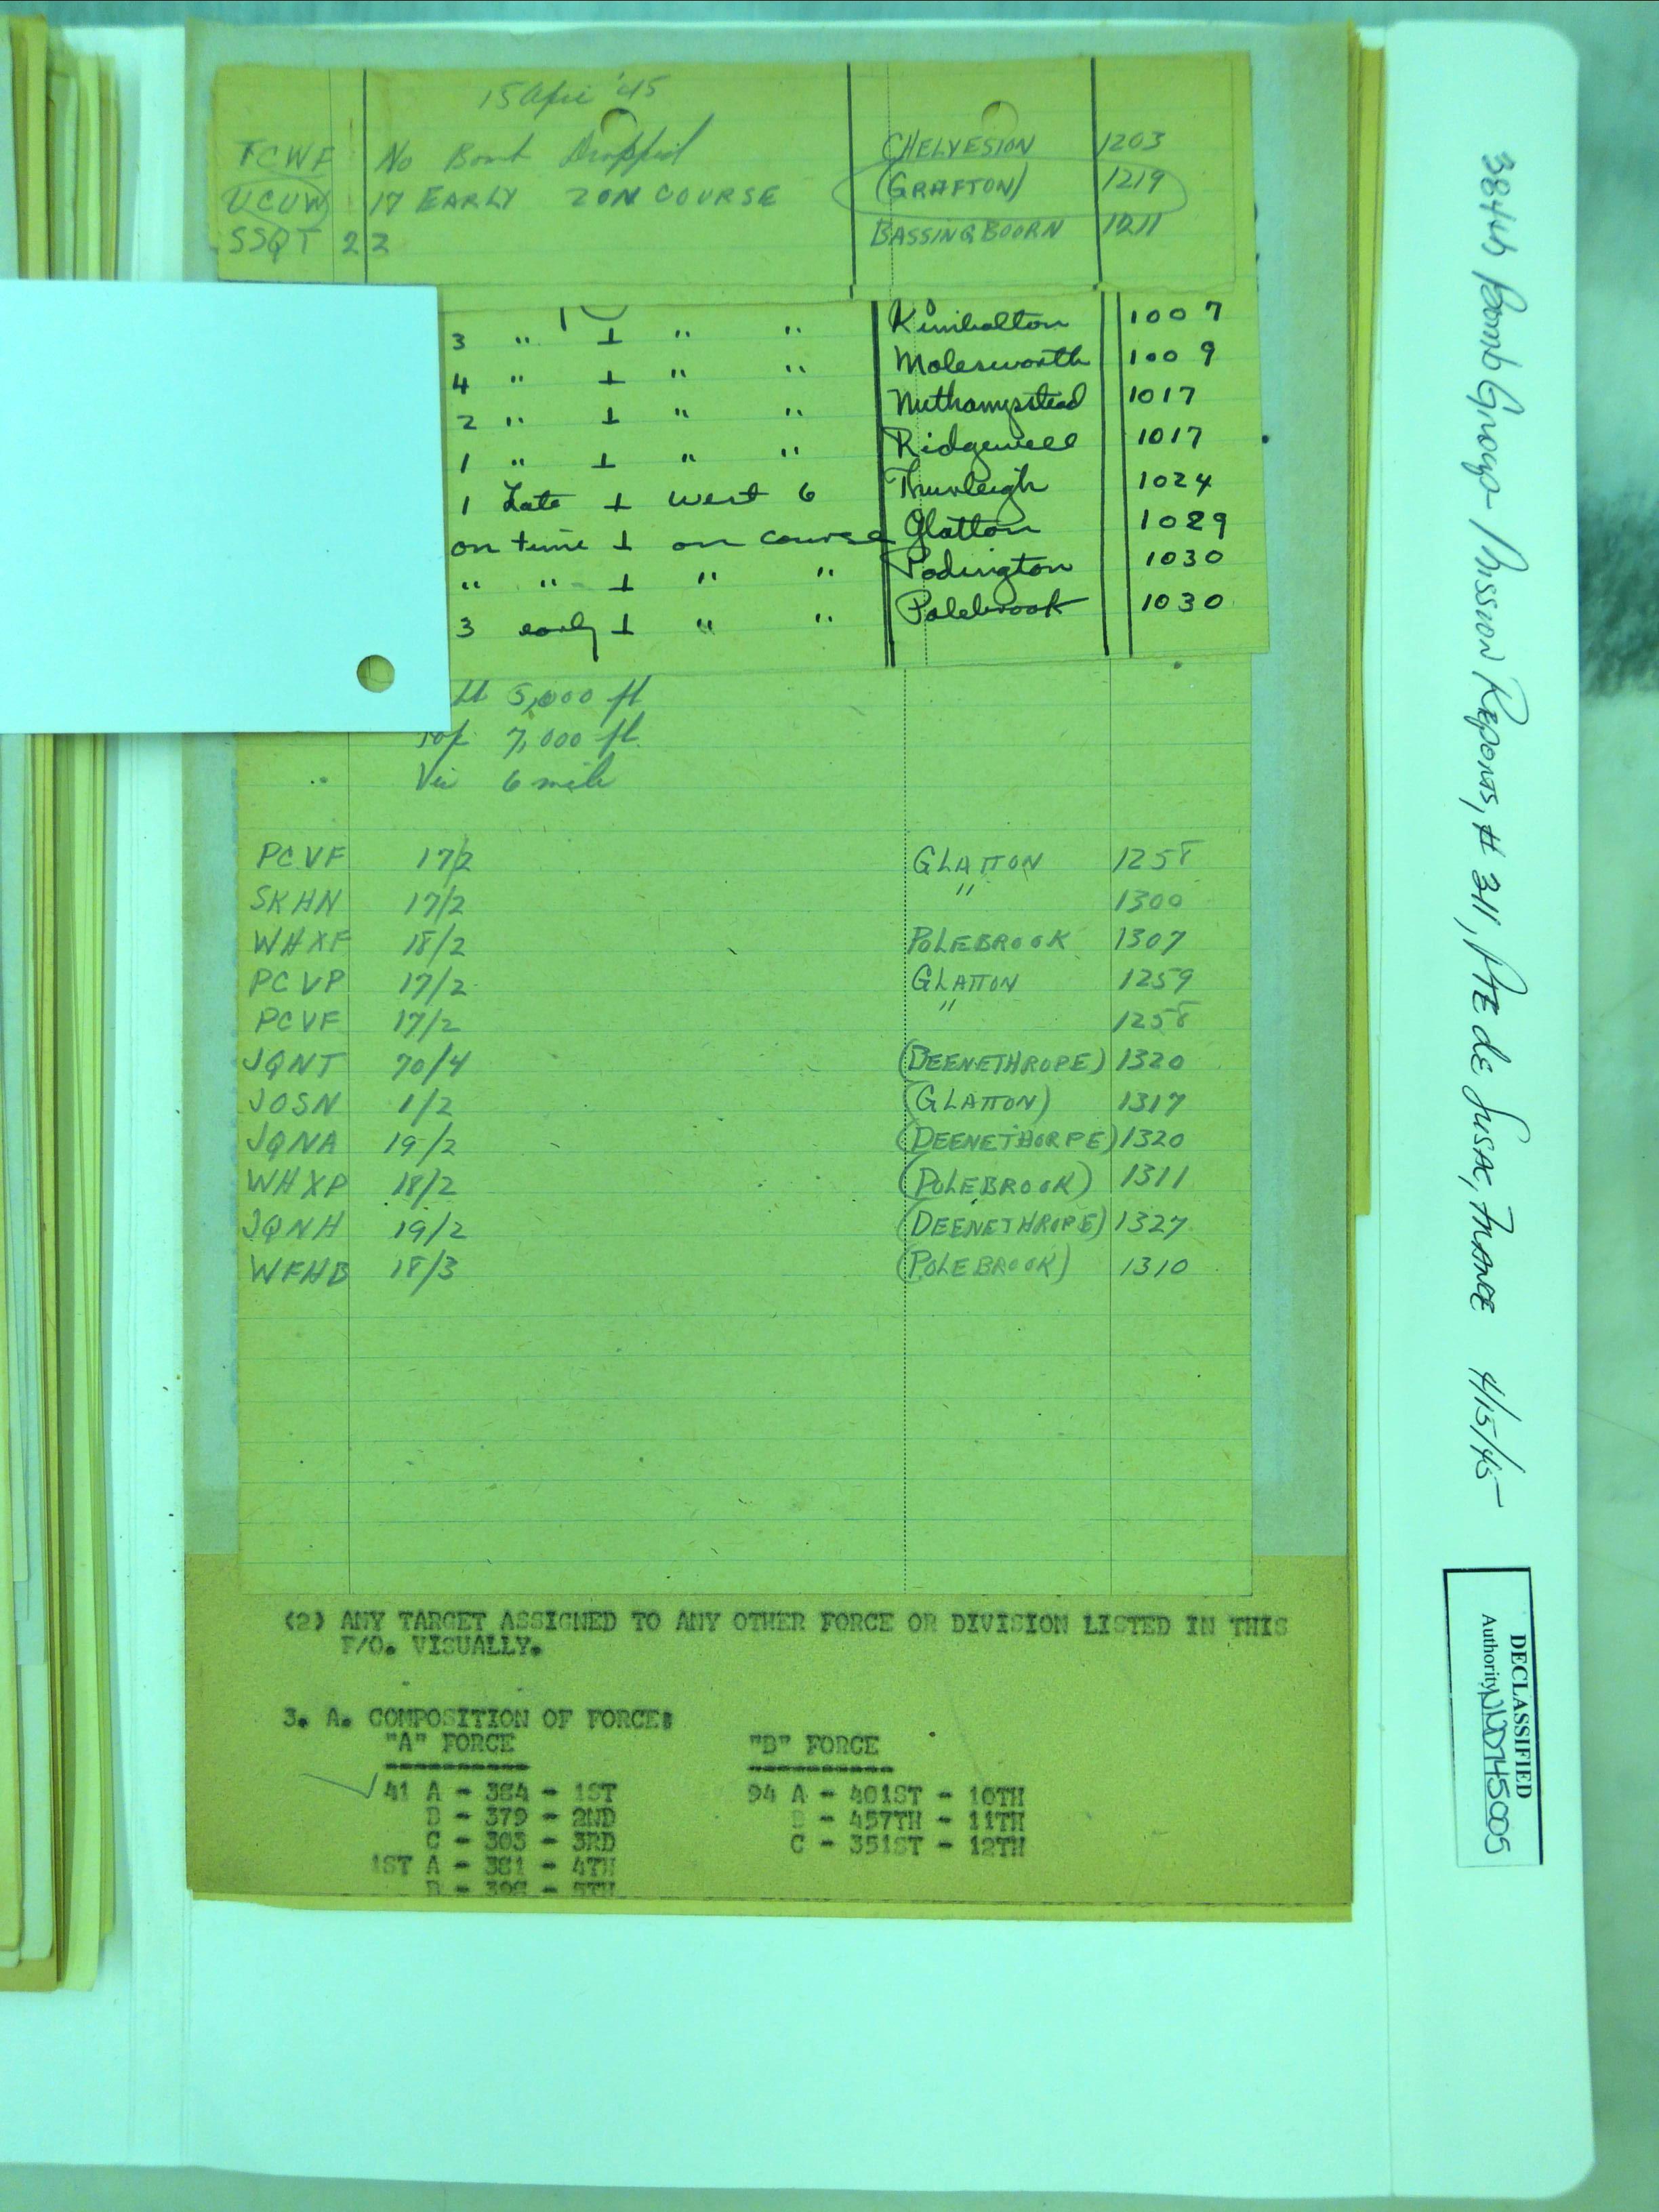 15 Apr '45
TCWF No Bomb Dropped CHELVESTON 1203
UCUW 17 EARLY 2 ON COURSE (GRAFTON) 1219
SSQT 22 BASSINGBOORN 1211
3 " ⊥ " " Kimbolton 1007
4 " ⊥ " " Molesworth 1009
2 " ⊥ " " Nuthampstead 1017
1 " ⊥ " " Ridgewell 1017
1 Late ⊥ West 6 Thurleigh 1024
on time ⊥ on course Glatton 1029
" " ⊥ " " Podington 1030
3 early ⊥ " " Polebrook 1030
5,000 ft
Top 7,000 ft.
Vis 6 mile
PCVF 17/2 GLATTON 1258
SKHN 17/2 " 1300
WHXF 18/2 POLEBROOK 1307
PCVP 17/2 GLATTON 1259
PCVF 17/2 " 1258
JQNT 70/4 (DEENETHROPE) 1320
JOSN 1/2 (GLATTON) 1317
JQNA 19/2 (DEENETHORPE) 1320
WHXP 18/2 (POLEBROOK) 1311
JQNH 19/2 (DEENETHROPE) 1327
WFHB 18/3 (POLEBROOK) 1310
(2) ANY TARGET ASSIGNED TO ANY OTHER FORCE OR DIVISION LISTED IN THIS
F/O. VISUALLY.
3. A. COMPOSITION OF FORCE:
"A" FORCE "B" FORCE
41 A - 384 - 1ST 94 A - 401ST - 10TH
B - 379 - 2ND B - 457TH - 11TH
C - 303 - 3RD C - 351ST - 12TH
1ST A - 381 - 4TH
B - 398 - 5TH
384th Bomb Group Mission Reports, # 311, PTE de Susac, France 4/15/45
DECLASSIFIED
Authority NND745005